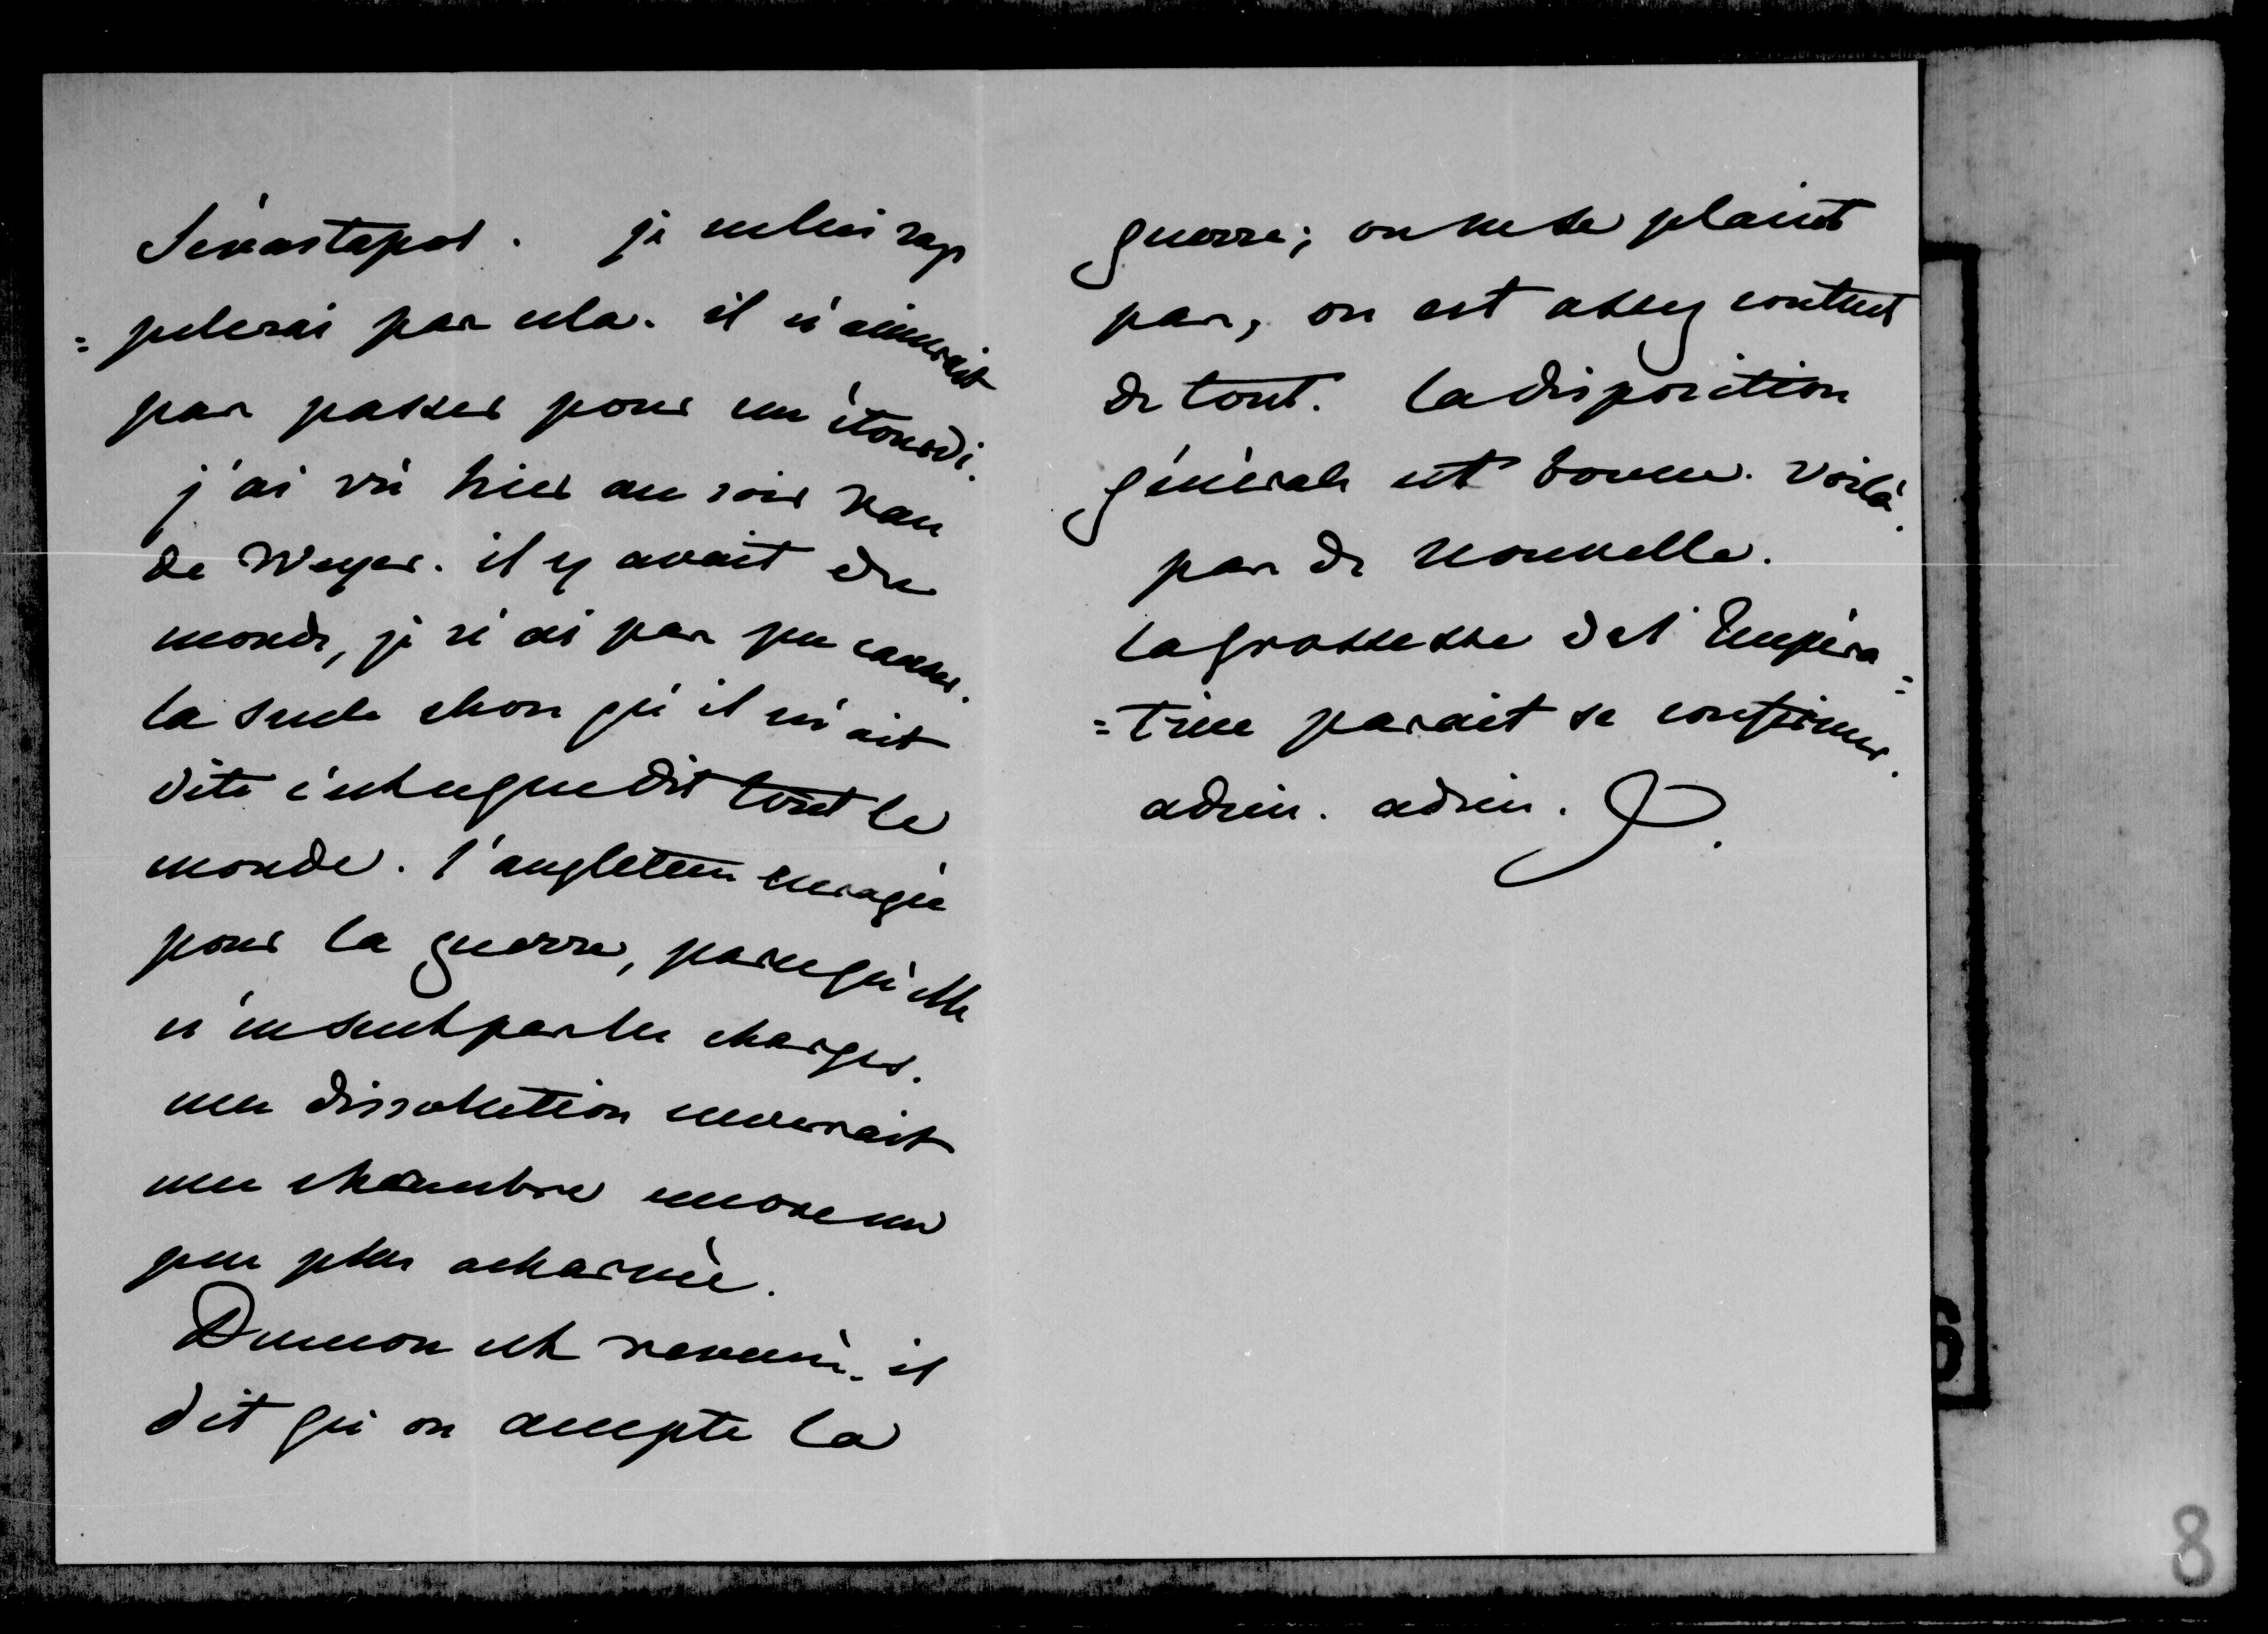 Sévastopol. je ne lui rap
= pelerai pas cela. il n'aimerait
pas passer pour un étourdi.
j'ai vû hier au soir Van
de Weyer. il y avait du
monde, je n'ai pas pu causer.
la seule chose qu'il m'ait
dite c'est ce que dit tout le
monde. l'angleterre enragée
pour la guerre, parce qu'elle
n'en sent pas les charges.
une dissolution enverrait
une chambre encore un
peu plus acharnée.
Dumon est revenu. il
dit qu'on accepte la
guerre; on ne se plaint
pas, on est assez content
de tout. la disposition
générale est bonne. Voilà
pas de nouvelle.
la grossesse de l'Impéra =
= trice parait se confirmer.
adieu. adieu.
8